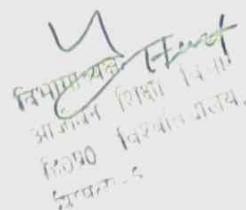 विभागाध्यक्ष
आजीवन शिक्षा विभाग
हि0प्र0 विश्वविद्यालय,
शिमला-5